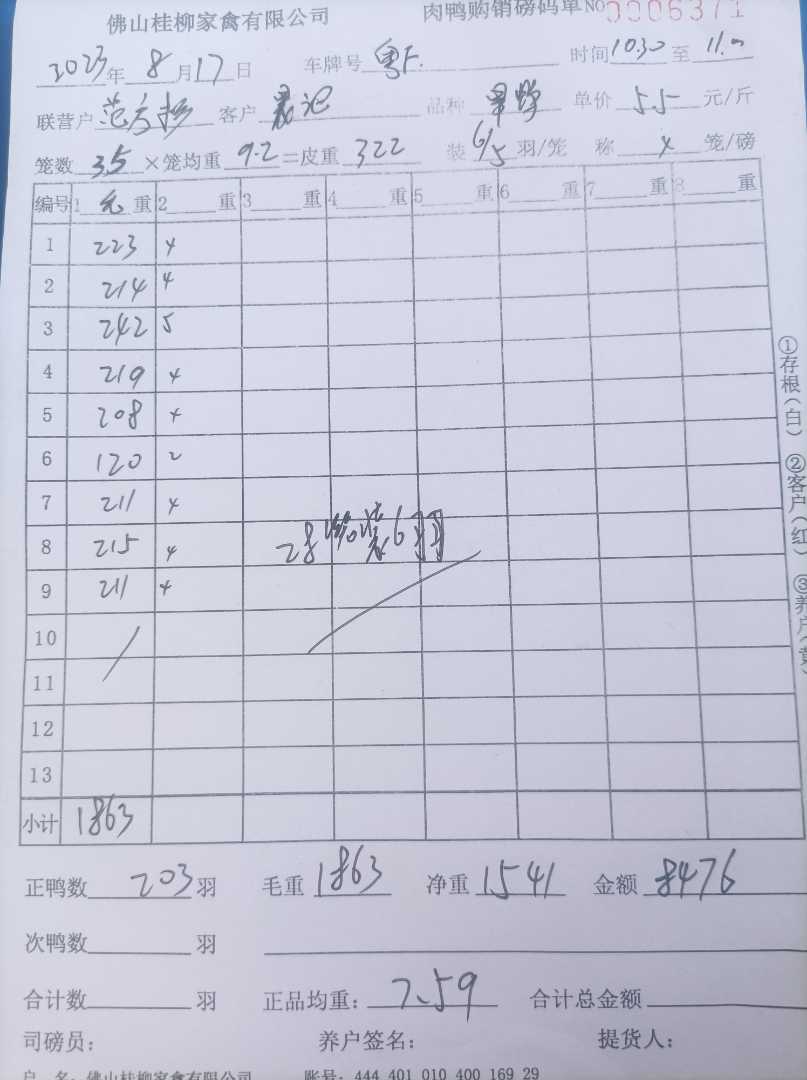 佛山桂柳家禽有限公司 肉鸭购销磅码单 NO 0006371
2023年8月17日 车牌号粤F. 时间10:30至11:00
联营户 客户晨记 品种 单价5.5元/斤
笼数35×笼均重9.2=皮重322 装6/5羽/笼 称4笼/磅
编号 1毛重 2 重 3 重 4 重 5 重 6 重 7 重 8 重
1 223 4
2 214 4
3 242 5
4 219 4
5 208 4
6 120 2
7 211 4
8 215 4 28笼装6羽
9 211 4
10
11
12
13
小计 1863
正鸭数203羽 毛重1863 净重1541 金额8476
次鸭数 羽
合计数 羽 正品均重：7.59 合计总金额
司磅员： 养户签名： 提货人：
户 名：佛山桂柳家禽有限公司 账号：444 401 010 400 169 29
①存根（白） ②客户（红） ③养户（黄）